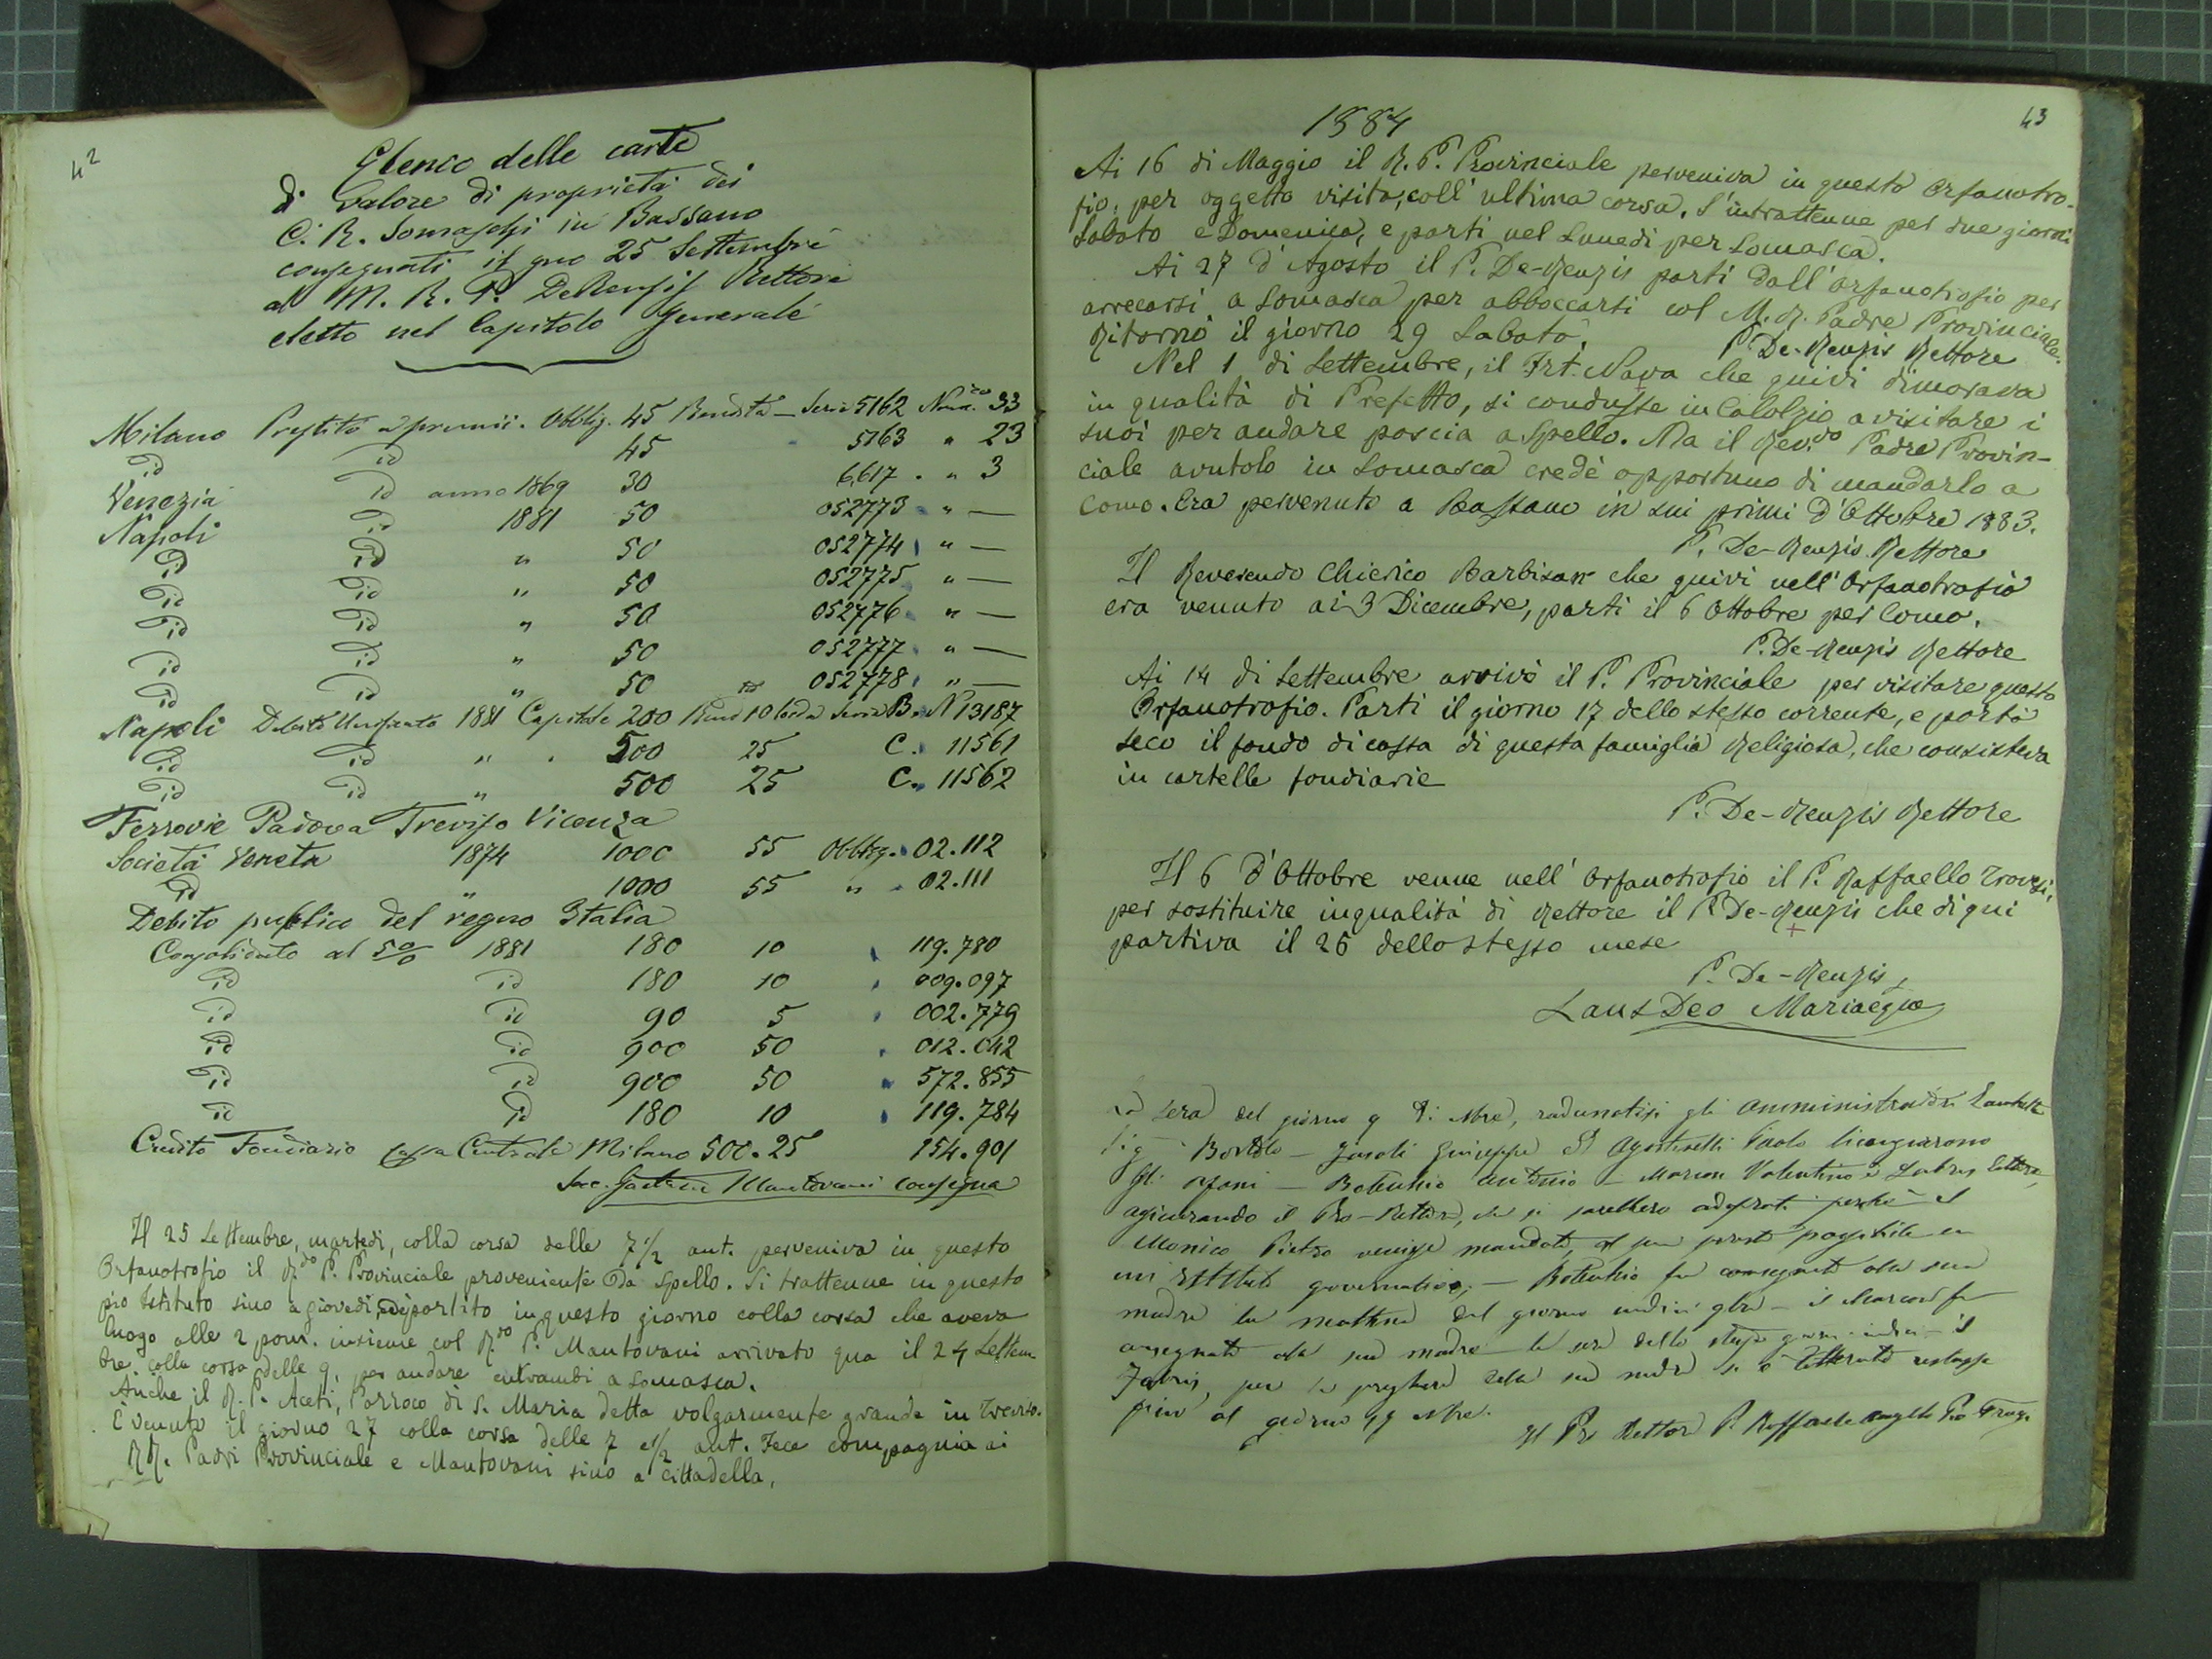 42
Elenco delle carte
di valore di proprietà dei
C. R. Somaschi in Bassano
consegnati il gno 25 Settembre
al M. R. P. DeRenzis Rettore
eletto nel Capitolo generale
Milano Prestito a premii. Obblig. 45 Rendita - Serie 5162 No 33
id id 45 5163 " 23
Venezia id anno 1869 30 6,617 . " 3
Napoli id 1881 50 052773 " —
id id " 50 052774 " —
id id " 50 052775 " —
id id " 50 052776 " —
id id " 50 052777 " —
id id " 50 052778 " —
Napoli Debito Unificato 1881 Capitale 200 10 Serie B. N 13187
id id " 500 25 C. 11561
id id " 500 25 C. 11562
Ferrovie Padova Treviso Vicenza
Società Veneta 1874 1000 55 Obblig. 02.112
id " 1000 55 " 02.111
Debito publico del regno Italia
Consolidato al 5% 1881 180 10 119.780
id id 180 10 009.097
id id 90 5 002.779
id id 900 50 012.042
id id 900 50 572.855
id id 180 10 119.784
Credito Fondiario Cassa Centrale Milano 500.25 154.901
Sac. Gaetano Mantovani consegna
Il 25 Settembre, martedì, colla corsa delle 7 1/2 ant. perveniva in questo
Orfanotrofio il R.do P. Provinciale proveniente da Spello. Si trattenne in questo
pio Istituto sino a giovedì, e ripartito in questo giorno colla corsa che aveva
luogo alle 2 pom. insieme col R.do P. Mantovani arrivato qua il 24 Settem-
bre colla corsa delle 9, per andare entrambi a Somasca.
Anche il R. P. Aceti, Parroco di S. Maria detta volgarmente grande in Treviso.
È venuto il giorno 27 colla corsa delle 7 e 1/2 ant. Fece compagnia ai
RR. Padri Provinciale e Mantovani sino a Cittadella.
43
1884
Ai 16 di Maggio il R. P. Provinciale perveniva in questo Orfanotro-
fio, per oggetto visita, coll' ultima corsa. S'intrattenne per due giorni
Sabato e Domenica, e partì nel Lunedì per Somasca.
Ai 27 d'Agosto il P. De-Renzis partì dall'Orfanotrofio per
arrecarsi a Somasca per abboccarsi col M. R. Padre Provinciale.
Ritornò il giorno 29 Sabato.
P. De-Renzis Rettore
Nel 1 di Settembre, il Frt. Nava che quivi dimorava
in qualità di Prefetto, si condusse in Calolzio a visitare i
suoi per andare poscia a Spello. Ma il Rev.do Padre Provin-
ciale avutolo in Somasca credè opportuno di mandarlo a
Como. Era pervenuto a Bassano in sui primi d'Ottobre 1883.
P. De-Renzis Rettore
Il Reverendo Chierico Barbisan che quivi nell'Orfanotrofio
era venuto ai 3 Dicembre, partì il 6 Ottobre per Como.
P. De-Renzis Rettore
Ai 14 di Settembre arrivò il P. Provinciale per visitare questo
Orfanotrofio. Partì il giorno 17 dello stesso corrente, e portò
seco il fondo di cassa di questa famiglia Religiosa, che consisteva
in cartelle fondiarie
P. De-Renzis Rettore
Il 6 d'Ottobre venne nell' Orfanotrofio il P. Raffaello
per sostituire in qualità di Rettore il P. De-Renzis che di qui
partiva il 26 dello stesso mese
P. De-Renzis
Laus Deo Mariaeque
La sera del giorno 9 radunatisi gli amministratori
Bortolo - Giuseppe Agostinelli Paolo licenziarono
gli orfani - Antonio - Valentino e
assicurando il Pro-Rettore, che si sarebbero adoprati perchè il
Monico Pietro venisse mandato, al più presto possibile in
un istituto governativo; - fu consegnato alla sua
madre la mattina del giorno undici - il fu
consegnato alla sua madre la sera dello stesso giorno undici - il
Fabris, per le preghiere della sua madre si è restasse
fino al giorno
Il Pro Rettore P. Raffaele